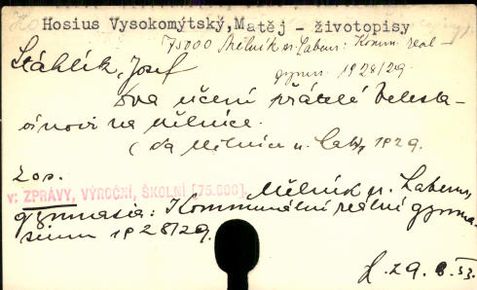 Hosius Vysokomýtský, Matěj - životopisy
75000 Mělník n. Labem: Komm. real-
Stáhlík, Josef
gymn. 1928/29
Dva učení přátelé Velesla-
vínovi na Mělníce.
(Na Mělníce n. Lab., 1929.
2 op.
v: ZPRÁVY, VÝROČNÍ, ŠKOLNÍ [75.000]. Mělník n. Labem,
gymnasia: Kommunální reální gymna-
sium 1928/29.
29.8.53.